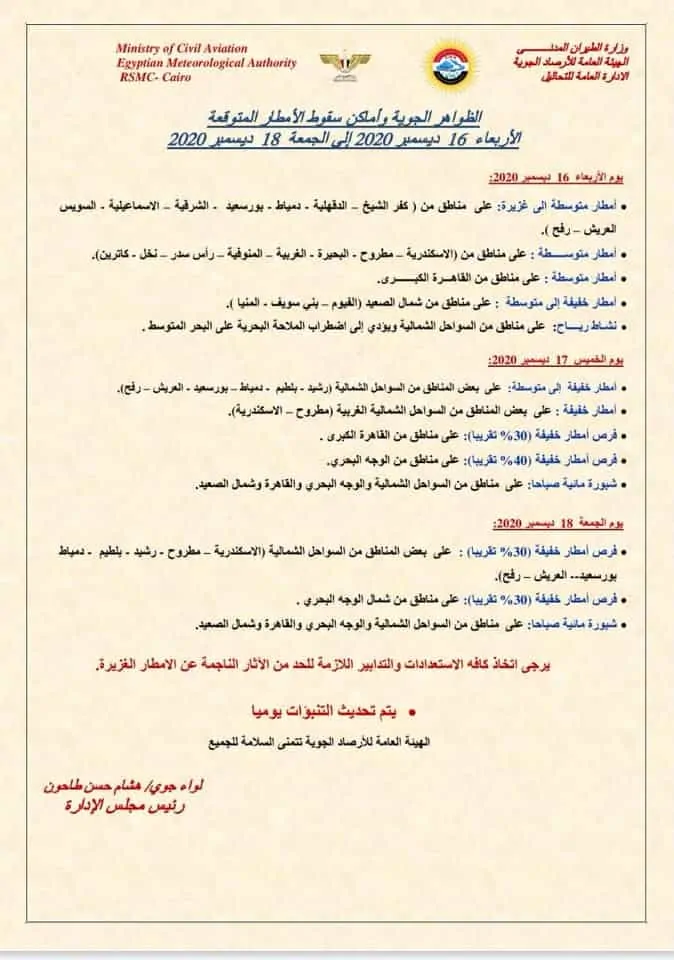 وزارة الطيران المدنـــــى
الهيئة العامة للأرصاد الجوية
الادارة العامة للتحاليل
Ministry of Civil Aviation
Egyptian Meteorological Authority
RSMC- Cairo
الظواهر الجوية وأماكن سقوط الأمطار المتوقعة
الأربعاء 16 ديسمبر 2020 إلى الجمعة 18 ديسمبر 2020
يوم الأربعاء 16 ديسمبر 2020:
• أمطار متوسطة الى غزيرة: على مناطق من ( كفر الشيخ – الدقهلية - دمياط - بورسعيد - الشرقية – الاسماعيلية - السويس
العريش – رفح ).
• أمطار متوســـــطة : على مناطق من (الاسكندرية – مطروح - البحيرة - الغربية – المنوفية – رأس سدر – نخل - كاترين).
• أمطار متوسطة : على مناطق من القاهــرة الكبــــرى.
• أمطار خفيفة إلى متوسطة : على مناطق من شمال الصعيد (الفيوم – بني سويف - المنيا ).
• نشـاط ريـــاح: على مناطق من السواحل الشمالية ويؤدي إلى اضطراب الملاحة البحرية على البحر المتوسط .
يوم الخميس 17 ديسمبر 2020:
• أمطار خفيفة إلى متوسطة: على بعض المناطق من السواحل الشمالية (رشيد - بلطيم - دمياط – بورسعيد - العريش – رفح).
• أمطار خفيفة : على بعض المناطق من السواحل الشمالية الغربية (مطروح – الاسكندرية).
• فرص أمطار خفيفة (30% تقريبا): على مناطق من القاهرة الكبرى .
• فرص أمطار خفيفة (40% تقريبا): على مناطق من الوجه البحري.
• شبورة مائية صباحا: على مناطق من السواحل الشمالية والوجه البحري والقاهرة وشمال الصعيد.
يوم الجمعة 18 ديسمبر 2020:
• فرص أمطار خفيفة (30% تقريبا) : على بعض المناطق من السواحل الشمالية (الاسكندرية – مطروح - رشيد - بلطيم - دمياط
بورسعيد-- العريش – رفح).
• فرص أمطار خفيفة (30% تقريبا): على مناطق من شمال الوجه البحري .
• شبورة مائية صباحا: على مناطق من السواحل الشمالية والوجه البحري والقاهرة وشمال الصعيد.
يرجى اتخاذ كافه الاستعدادات والتدابير اللازمة للحد من الأثار الناجمة عن الامطار الغزيرة.
• يتم تحديث التنبؤات يوميا
الهيئة العامة للأرصاد الجوية تتمنى السلامة للجميع
لواء جوي/ هشام حسن طاحون
رئيس مجلس الإدارة